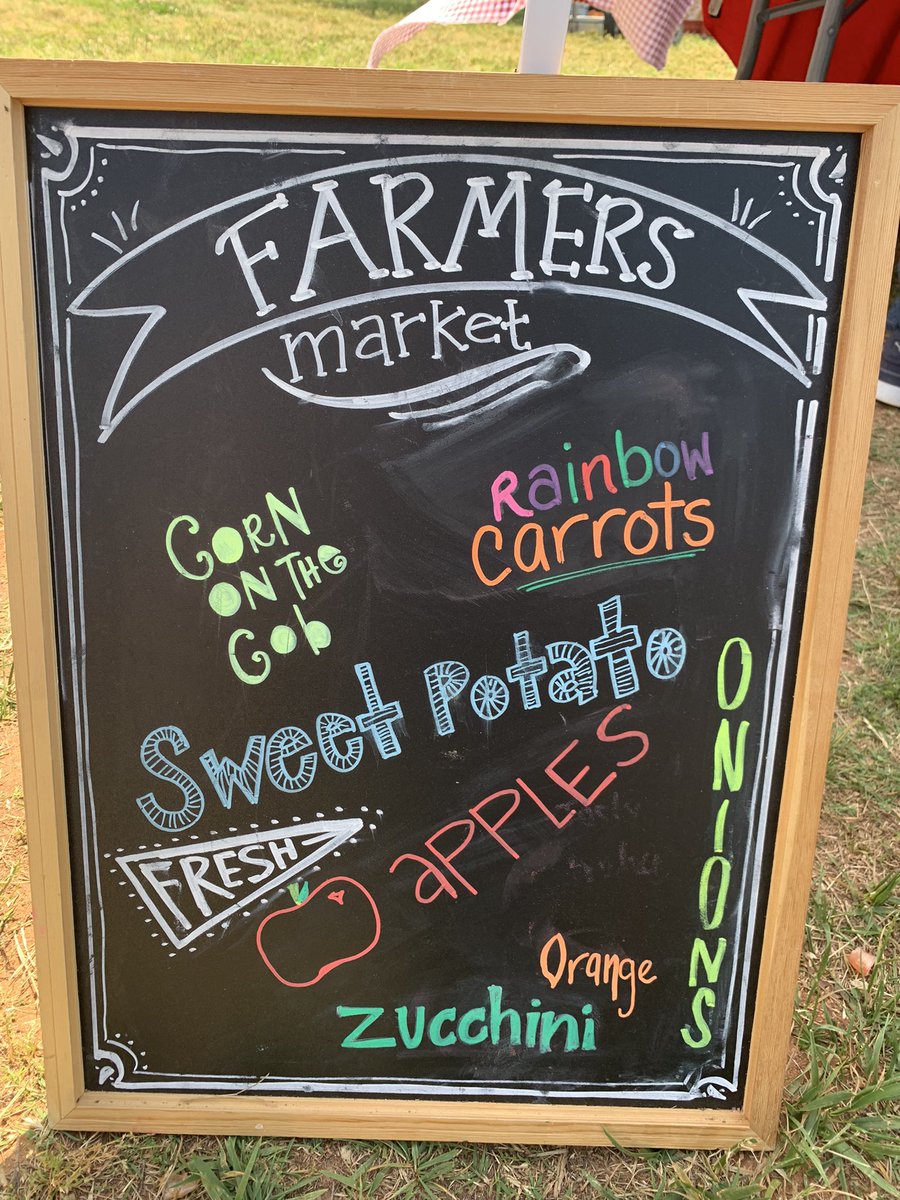 FARMERS
market
Rainbow
Carrots
CORN
ON THE
Cob
Sweet Potato
APPLES
FRESH
ONIONS
Orange
Zucchini